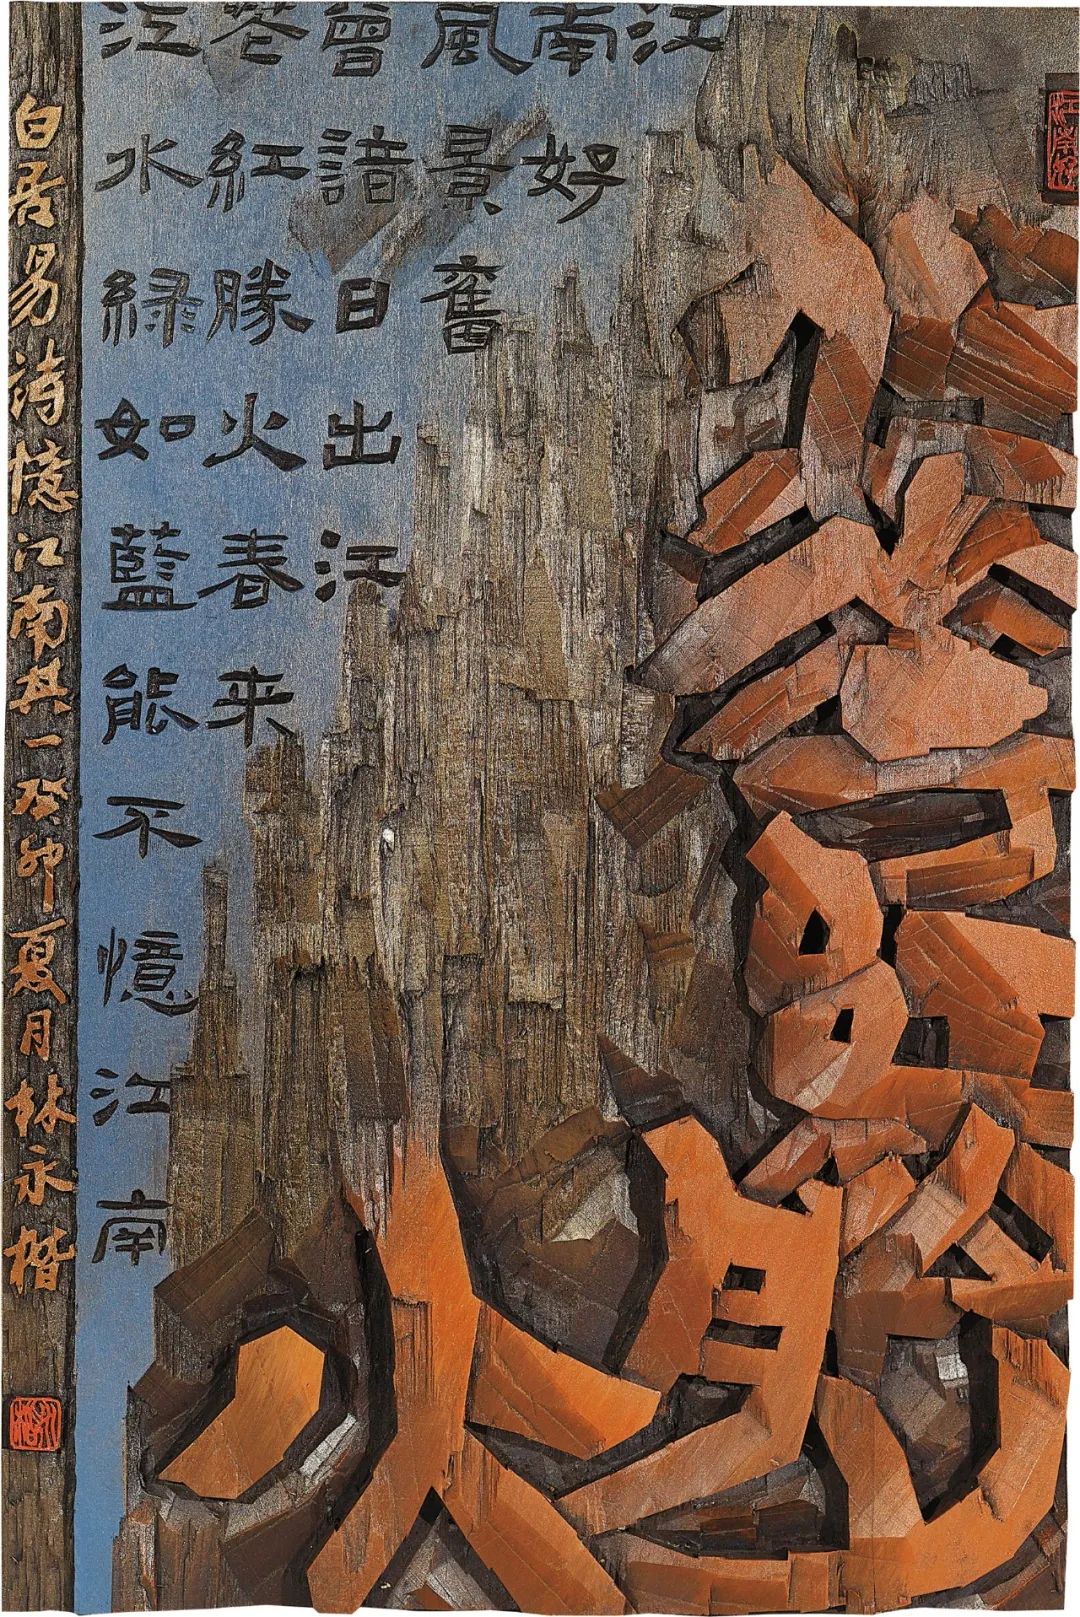 江
南好
風景舊
曾諳日出江
花紅勝火春来
江水緑如藍能不憶江南
白居易詩憶江南其一癸卯夏月林永楷
勝
火